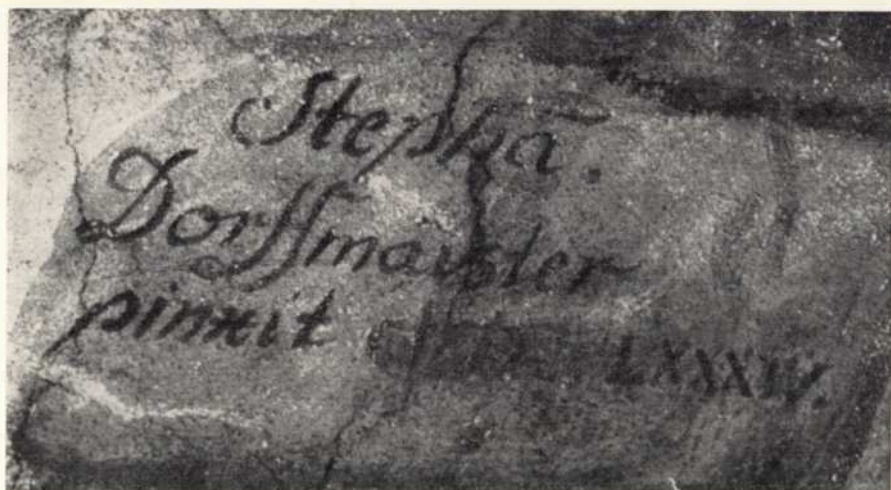 Stephā.
Dorffmaister
pinxit LXXXIV.